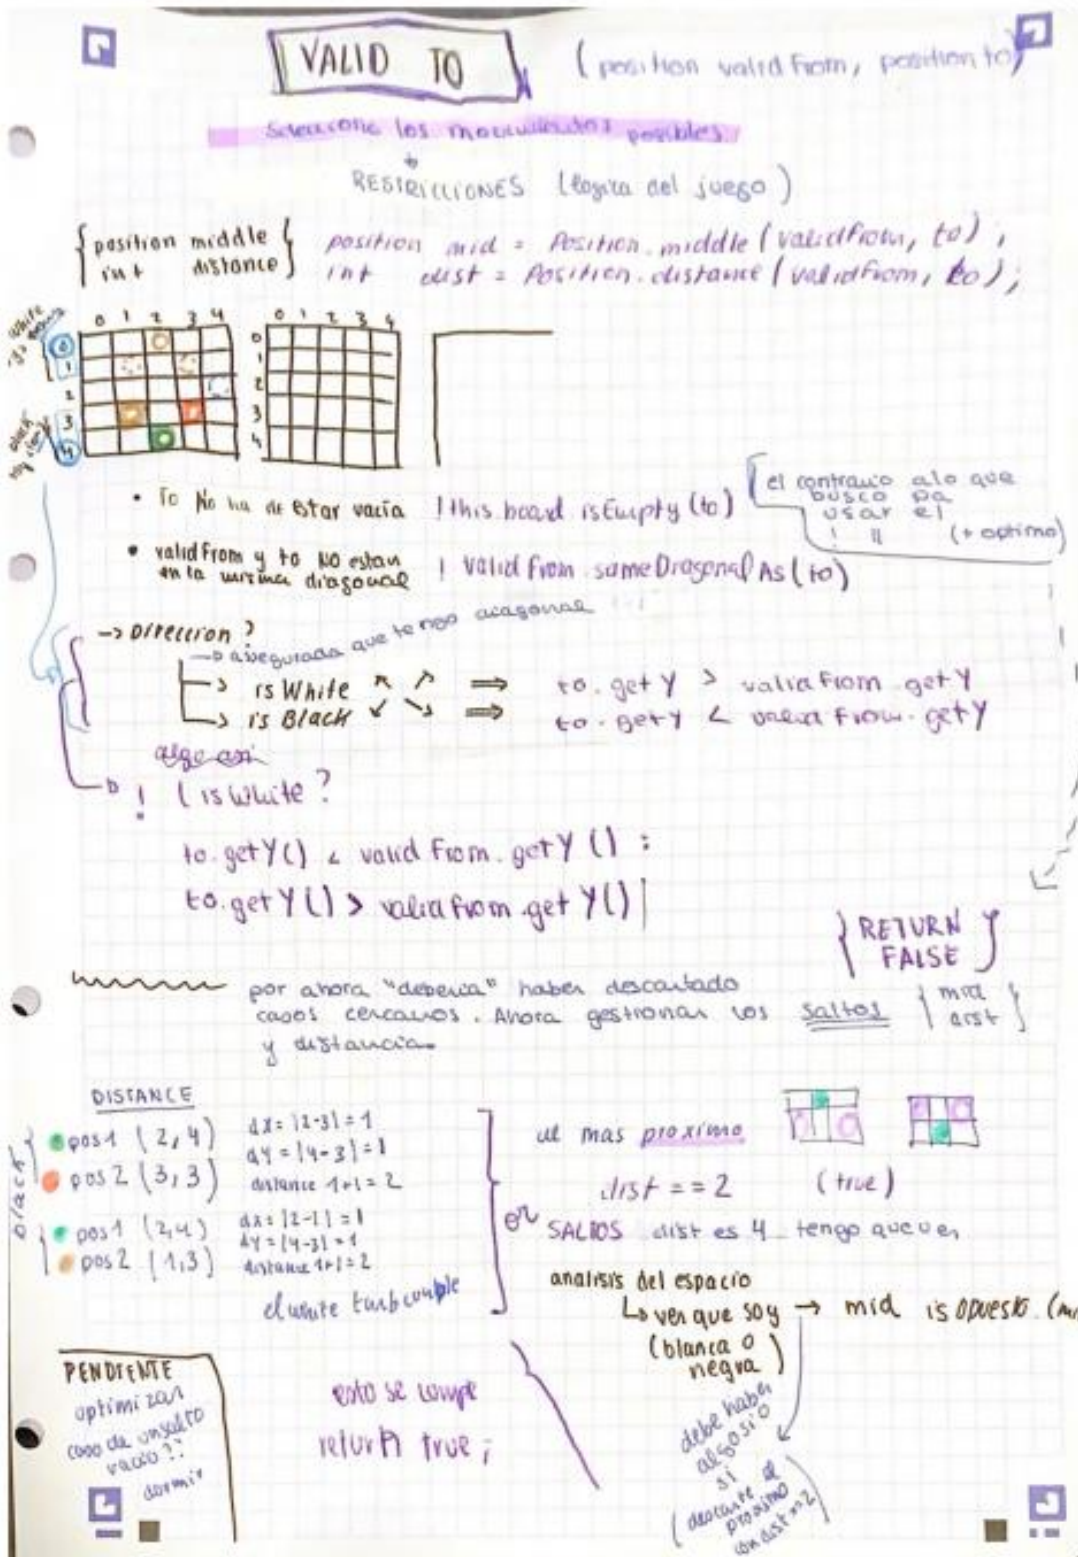 VALID TO
(position valid From, position to)
Selecciona los movimientos posibles
RESTRICCIONES (logica del juego)
position middle
int distance
position mid = Position.middle (validfrom, to) ;
int dist = Position.distance (validfrom, to) ;
white
0 1 2 3 4
0
1
2
3
4
black
0 1 2 3 4
0
1
2
3
4
• To No ha de estar vacia ! this.board isEmpty (to)
el contrario a lo que
busco pa
usar el
! || (+ optimo)
• valid from y to NO estan
en la misma diagonal ! valid from. same Diagonal As (to)
-> Direccion ?
asegurada que tengo diagonal
-> is White ↖ ↗ ⇒ to. get Y > valid from get Y
-> is Black ↙ ↘ ⇒ to. get Y < valid from. get Y
algo asi
! ( is White ?
to. get Y() < valid From. get Y () :
to. get Y () > valid from .get Y()
RETURN
FALSE
por ahora "deberia" haber descartado
casos cercanos. Ahora gestionar los saltos
mid
dist
y distancia.
DISTANCE
black
pos1 (2,4)
dx = |2-3| = 1
dy = |4-3| = 1
pos 2 (3,3)
distance 1+1 = 2
pos1 (2,4)
dx = |2-1| = 1
dy = |4-3| = 1
pos 2 (1,3)
distance 1+1 = 2
el white tamb cumple
el mas proximo
dist == 2 (true)
or
SALTOS dist es 4 tengo que ver
analisis del espacio
↳ ver que soy → mid is opuesto. (mi
(blanca o
negra)
debe haber
algo sio
si
(descarte el
proximo
con dist == 2)
esto se cumple
return true ;
PENDIENTE
optimizar
caso de un salto
vacio ??
dormir